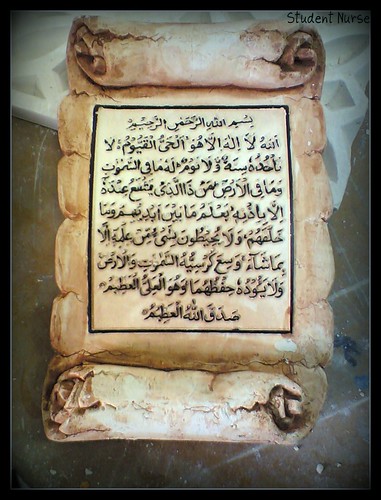 Student Nurse
بسم الله الرحمن الرحيم
الله لا إله إلا هو الحي القيوم لا
تأخذه سنة ولا نوم له ما في السموت
وما في الأرض من ذا الذي يشفع عنده
إلا بإذنه يعلم ما بين أيديهم وما
خلفهم ولا يحيطون بشيء من علمه إلا
بما شاء وسع كرسيه السموت والأرض
ولا يئوده حفظهما وهو العلي العظيم
صدق الله العظيم